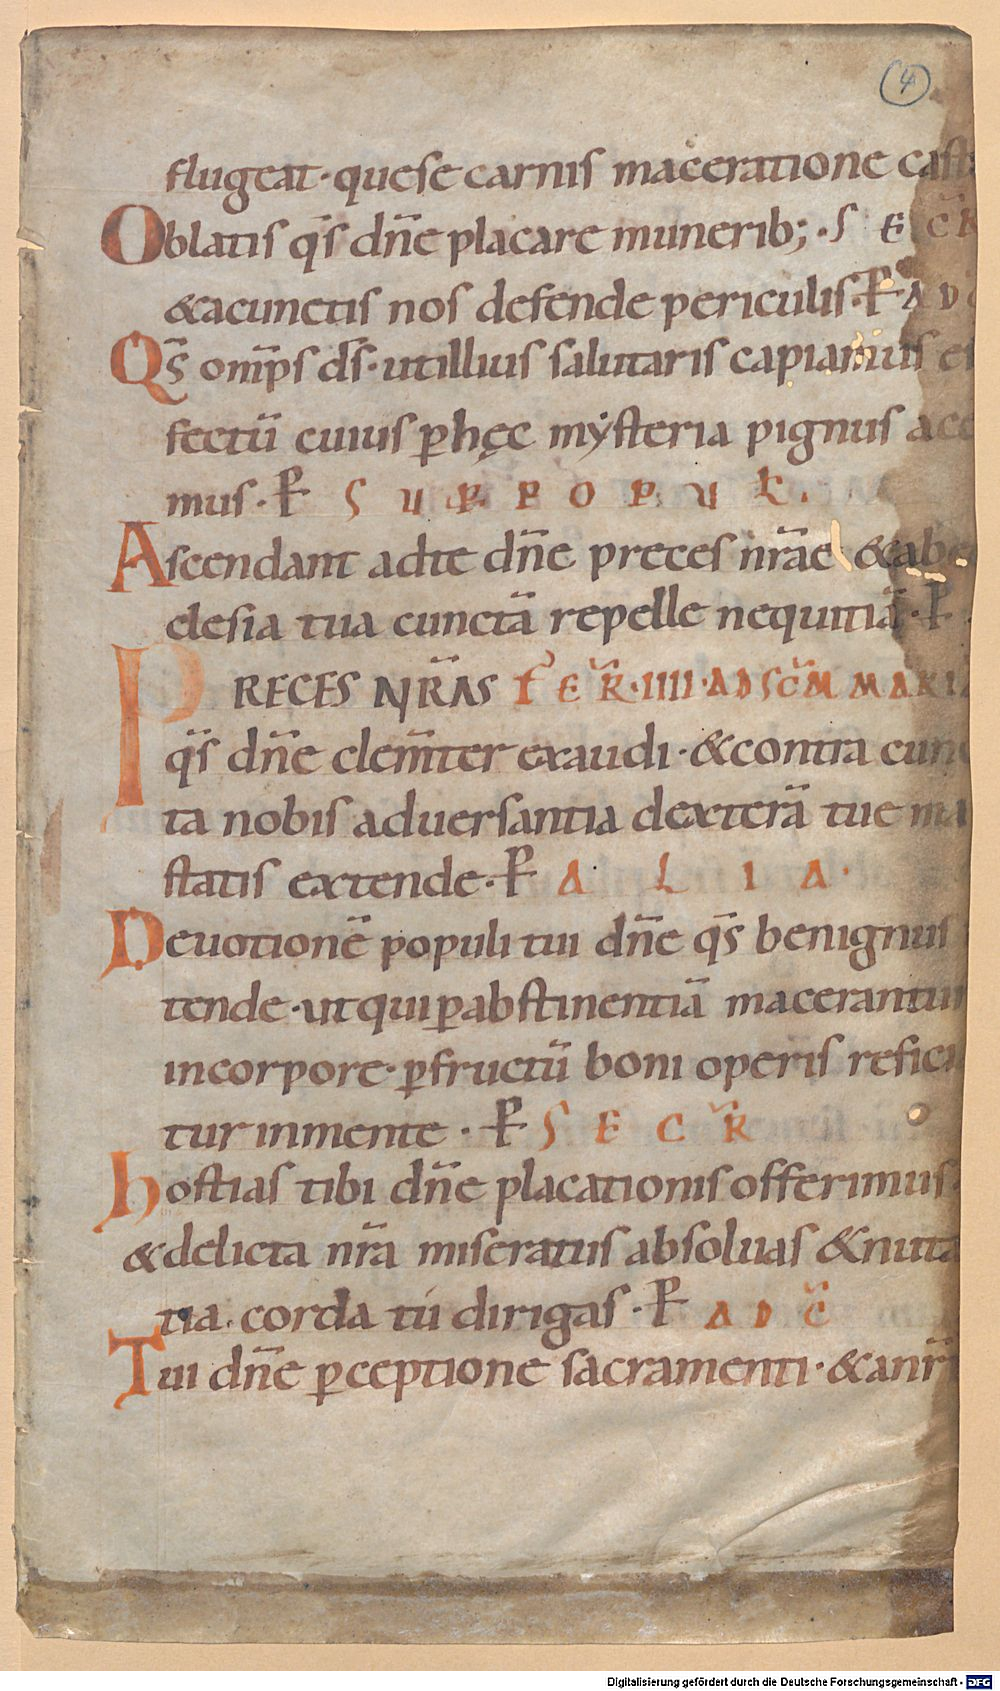 4
flugeat · quese carnis maceratione cast
Oblatis q̄s dn̄e placare munerib; · S E C̄ R
&acunctis nos defende periculis · P̵ A D C
Q̄s om̄ps d̄s · utillius salutaris capiamus ef
fectū cuius ꝑhęc mẏsteria pignus acc
mus · P̵ S U P P O P U L .
Ascendant adte dn̄e preces nr̄ae &abec
clesia tua cunctā repelle nequitiā · P̵
PRECES NR̄AS FER̄ · IIII · AD SC̄M MARIA
q̄s dn̄e clem̄ter exaudi · &contra cunc
ta nobis aduersantia dexterā tue ma
statis extende · P̵ A L I A ·
Deuotionē populi tui dn̄e q̄s benignus
tende · ut qui ꝑabstinentiā macerantur
incorpore · ꝑfructū boni operis refici
tur inmente · P̵ S E C R̄
hostias tibi dn̄e placationis offerimus ·
&delicta nr̄a miseratus absoluas &nuta
tia · corda tú dirigas · P̵ A D C̄
Tui dn̄e ꝑceptione sacramenti · &anr̄i
Digitalisierung gefördert durch die Deutsche Forschungsgemeinschaft - DFG